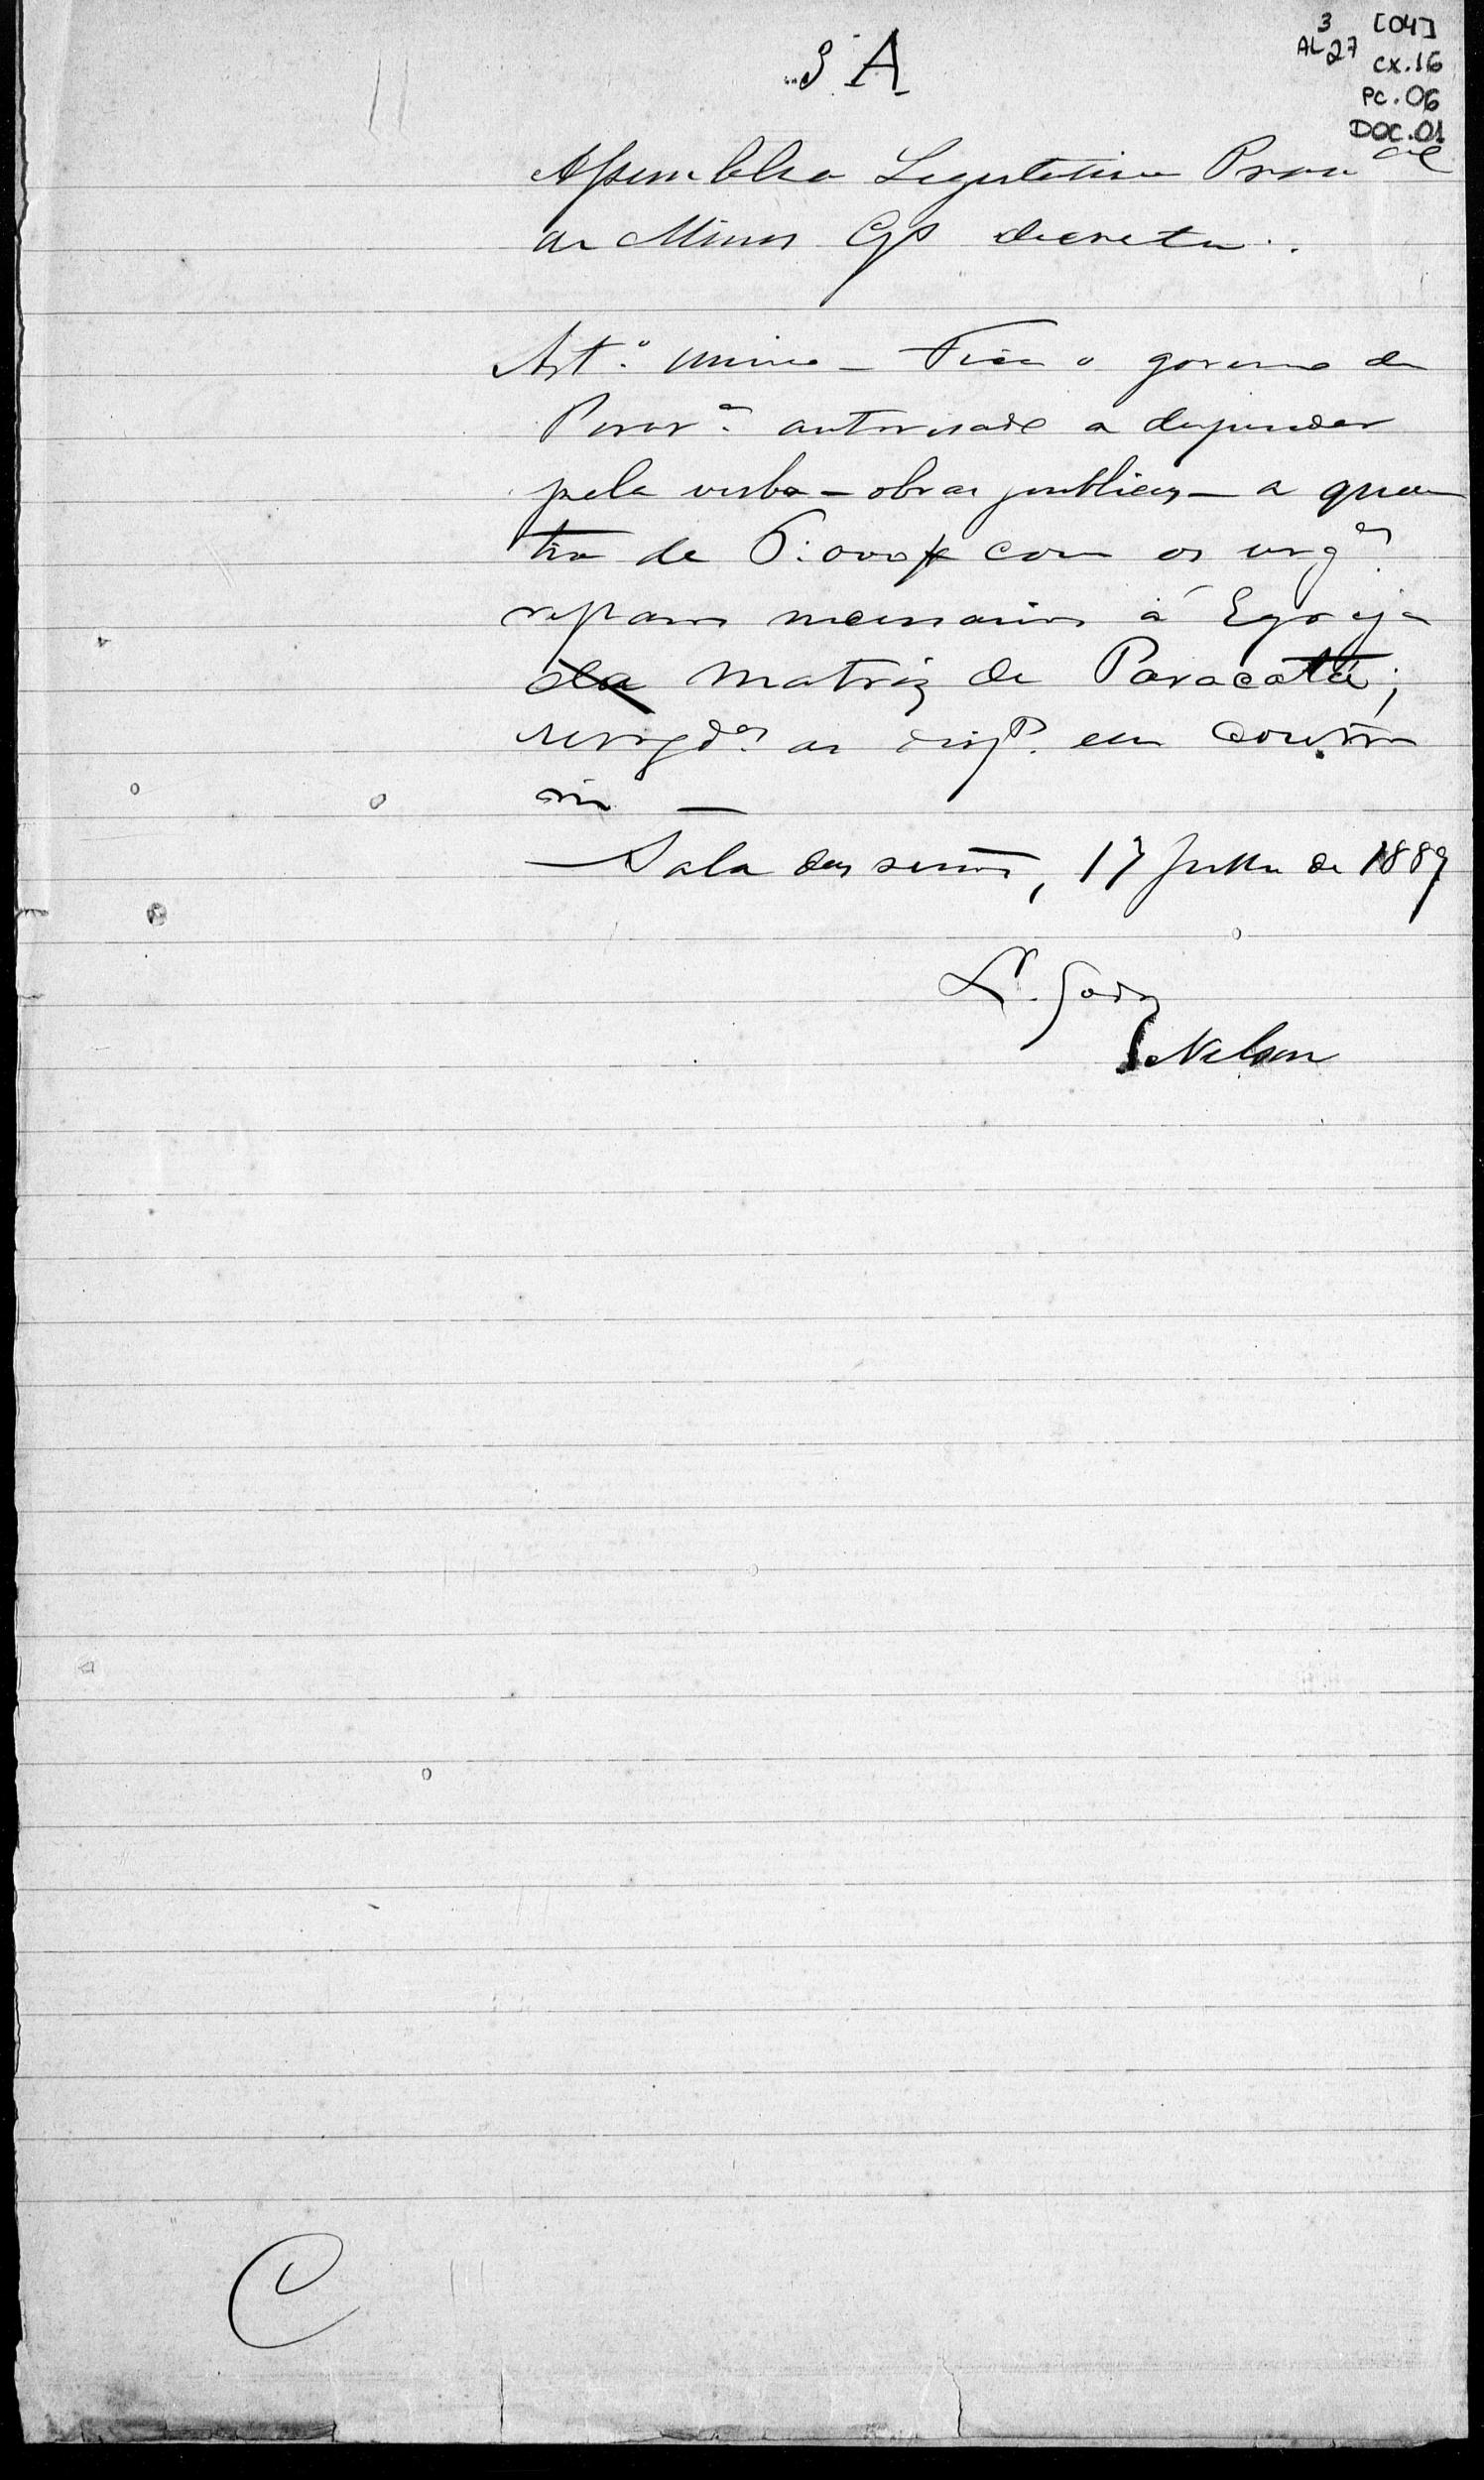 3 [04]
AL 27 CX.16
PC.06
DOC.01
3 A
Assemblea Legislativa Provcal
de Minas Gs decreta:
Art.o unico – Fica o governo da
Prov.a autorisado a despender
pela verba – obras publicas – a quan
tia de 6:000$ com os urg.es
reparos necessarios á Egreja
da matriz de Paracatú;
revogd.as as disp. em contra
rio —
Sala das sessões, 17 Julho de 1887
Nelson
C